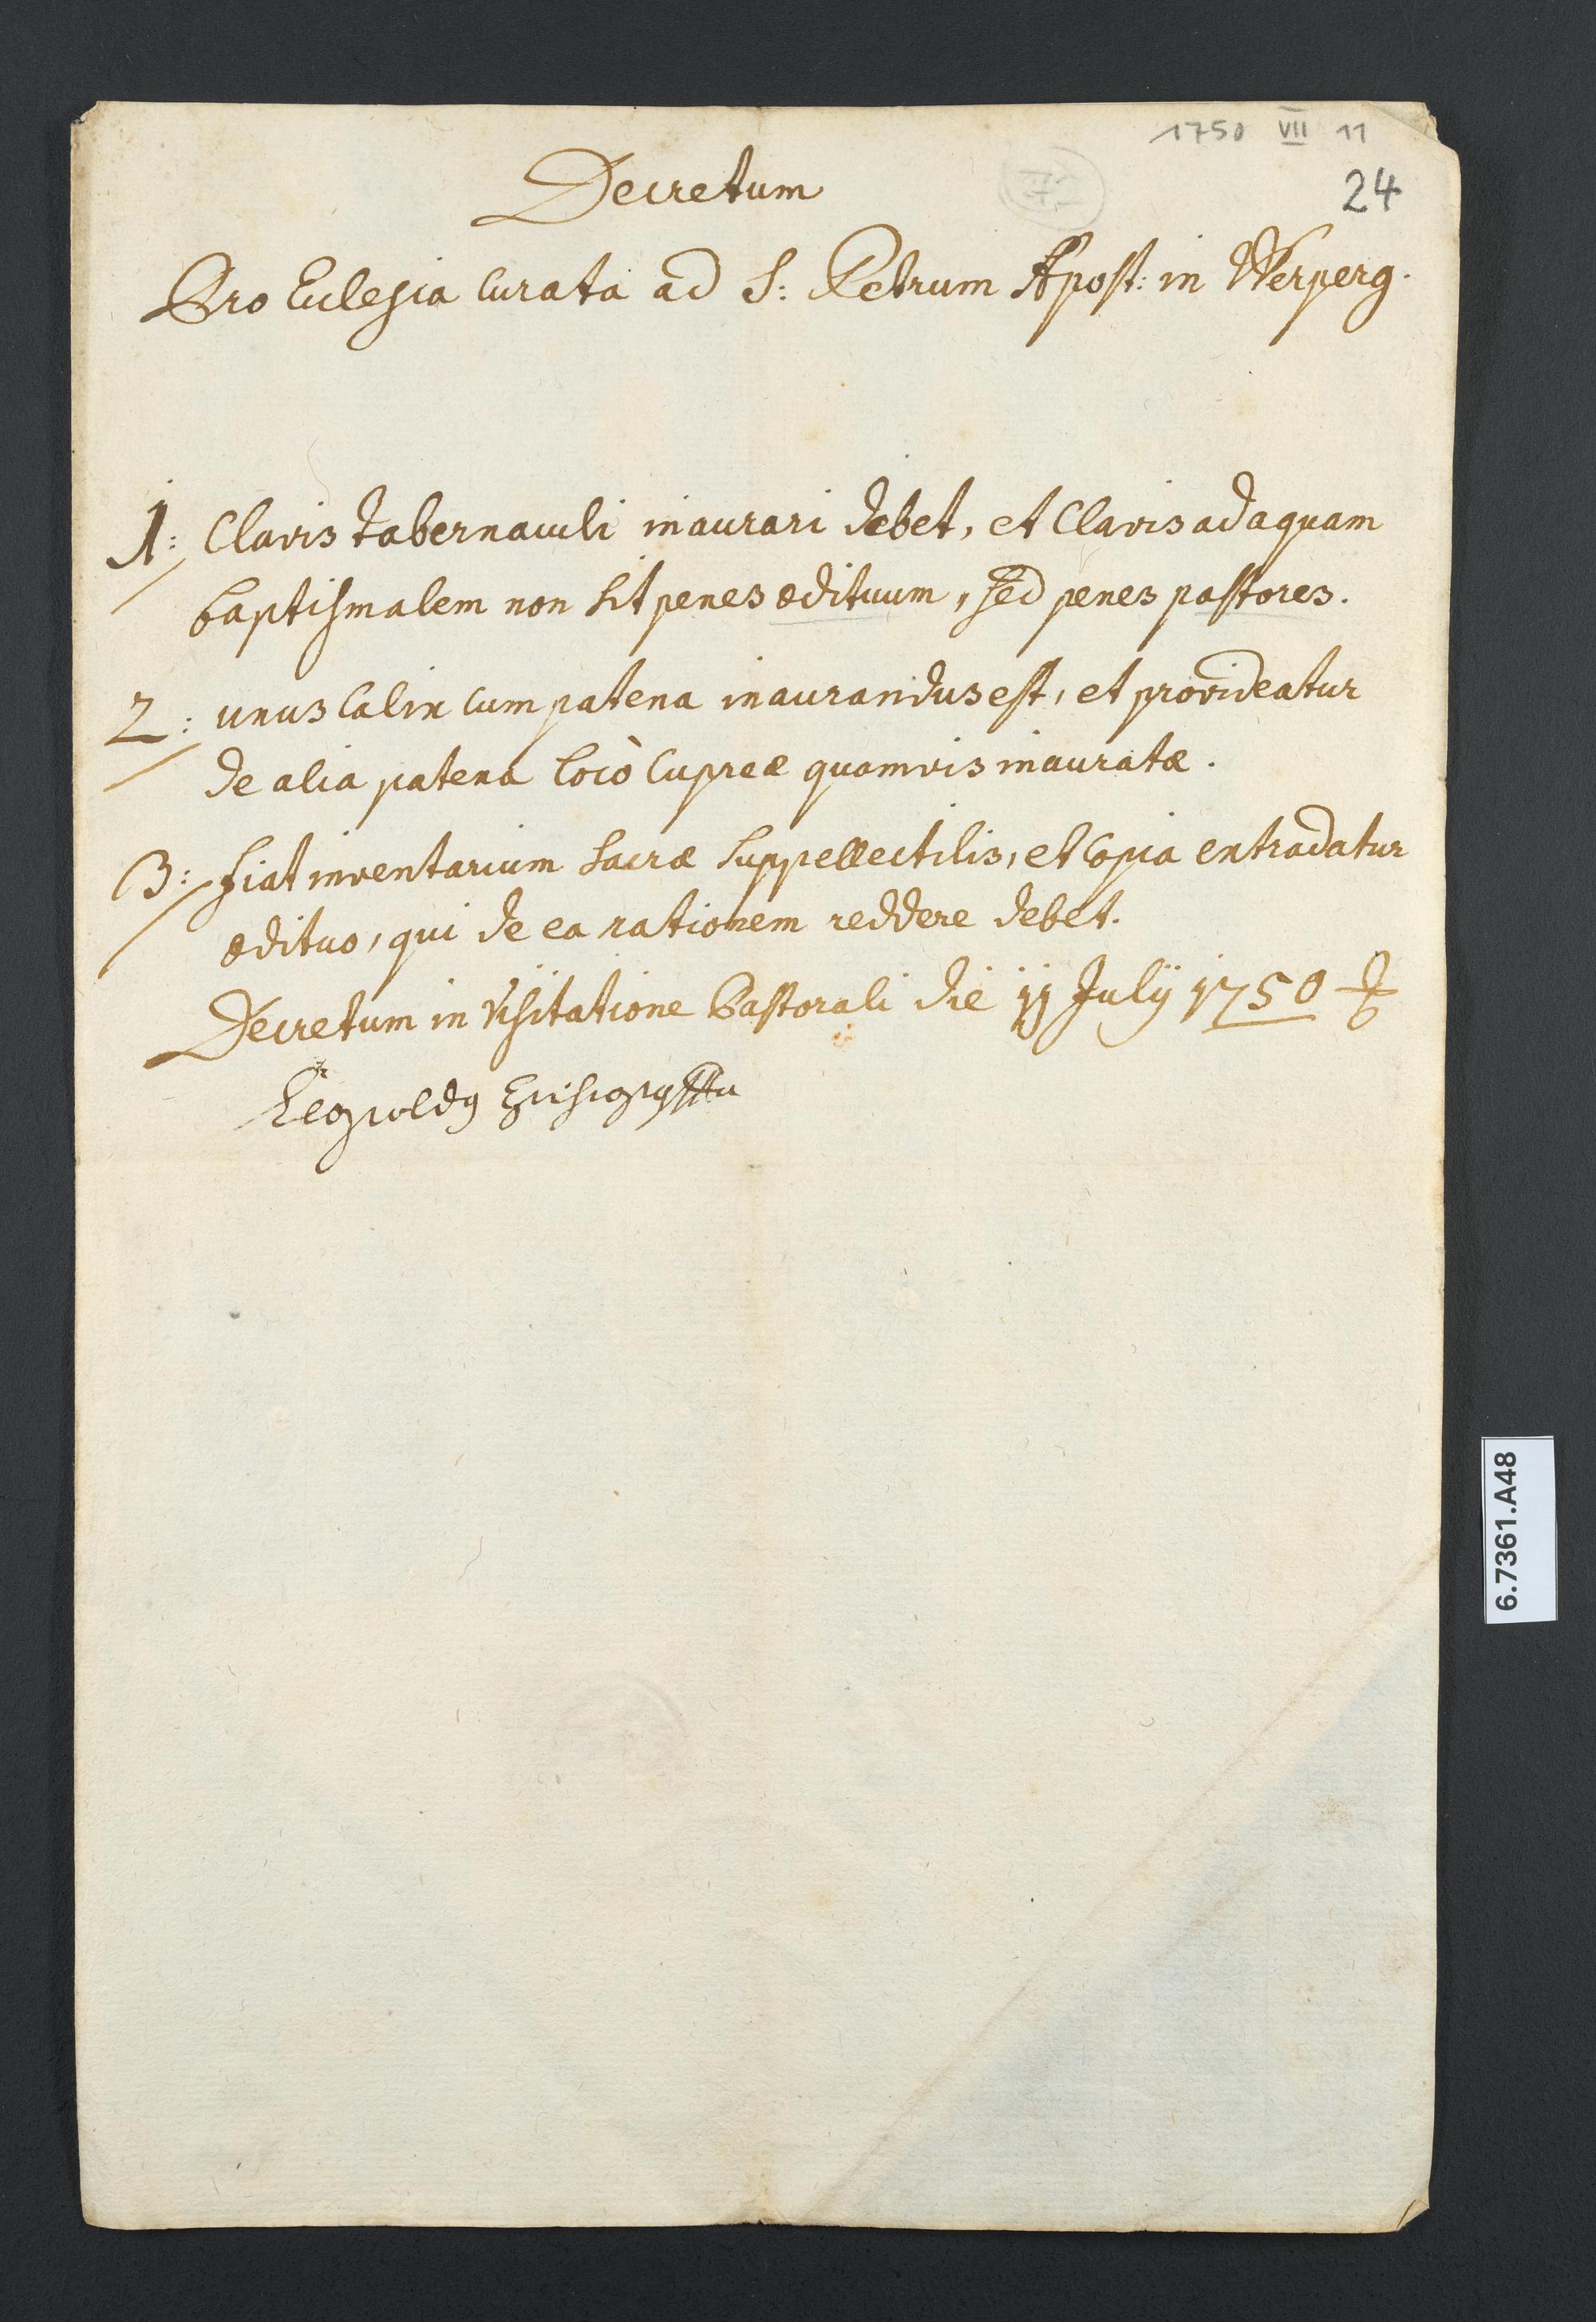 1750 VII 11
24
Decretum
Pro Ecclesia Curata ad S: Petrum Apost: in Werperg.
1: Clavis tabernaculi inaurari debet, et Clavis ad aquam
baptismalem non sit penes ædituum, sed penes pastores.
2: unus Calix cum patena inaurandus est, et provideatur
de alia patena locò Cupreæ quamvis inauratæ.
3: fiat inventarium Sacræ Suppellectilis, et Copia extradatur
ædituo, qui de ea rationem reddere debet.
Decretum in Visitatione Pastorali die 11 Julÿ 1750
Leopoldus Episcopus
6.7361.A48